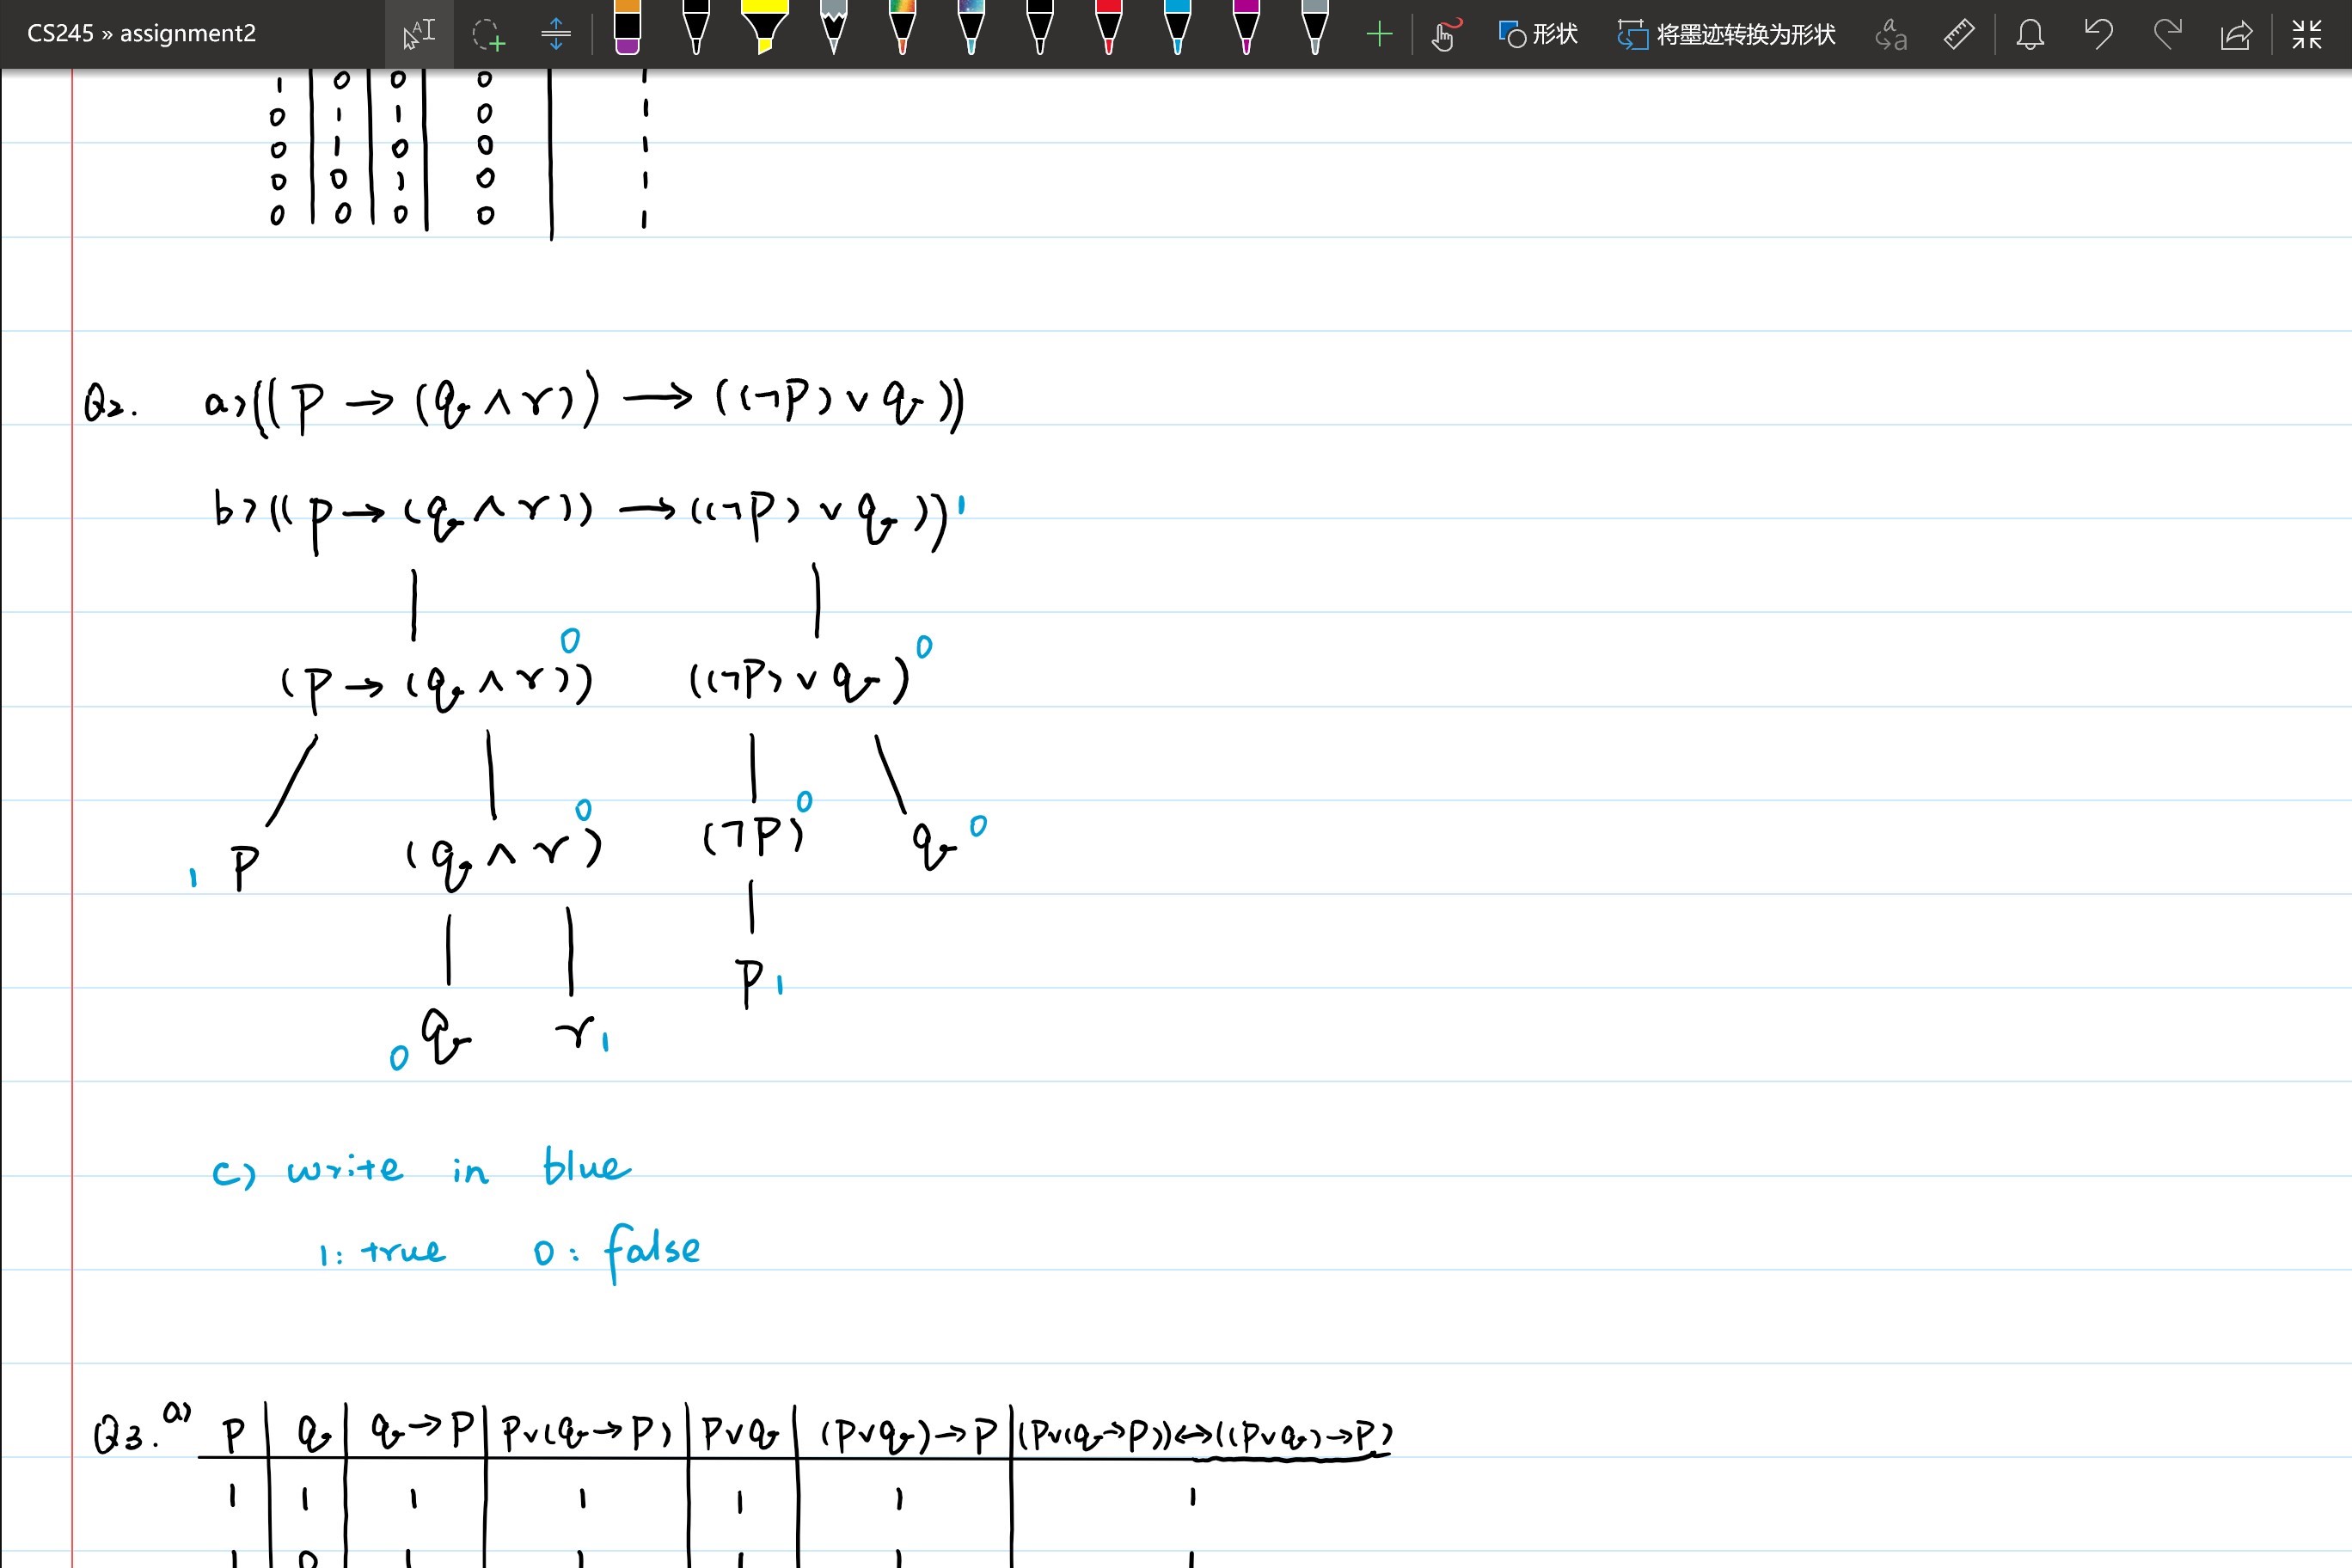 CS245 » assignment2 形状 将墨迹转换为形状
1 0 0 0 1
0 1 1 0 1
0 1 0 0 1
0 0 1 0 1
0 0 0 0 1
Q2. a) ((P → (q ∧ r)) → ((¬P) ∨ q))
b) ((P → (q ∧ r)) → ((¬P) ∨ q)) 1
(P → (q ∧ r)) 0 ((¬P) ∨ q) 0
1 P (q ∧ r) 0 (¬P) 0 q 0
0 q r 1 P 1
c) write in blue
1: true 0: false
Q3. a) P q q → P P ∨ (q → P) P ∨ q (P ∨ q) → P (P ∨ (q → P)) ↔ ((P ∨ q) → P)
1 1 1 1 1 1 1
1 0 1 1 1 1 1